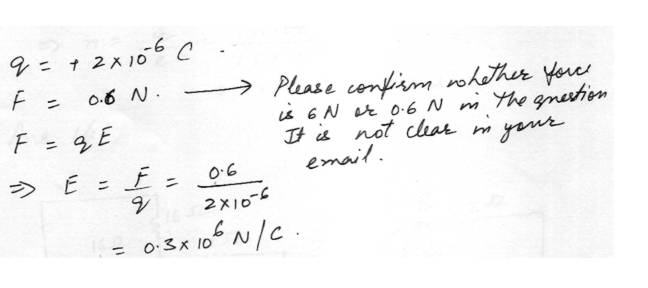 q = + 2 × 10⁻⁶ C .
F = 0.6 N. → Please confirm whether force
is 6 N or 0.6 N in the question
It is not clear in your
email.
F = qE
⇒ E = F/q = 0.6/2×10⁻⁶
= 0.3 × 10⁶ N/C .